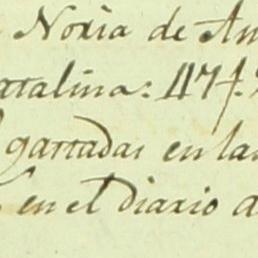 Noria de An
atalina: 1174.
gastadas en las
en el diario d